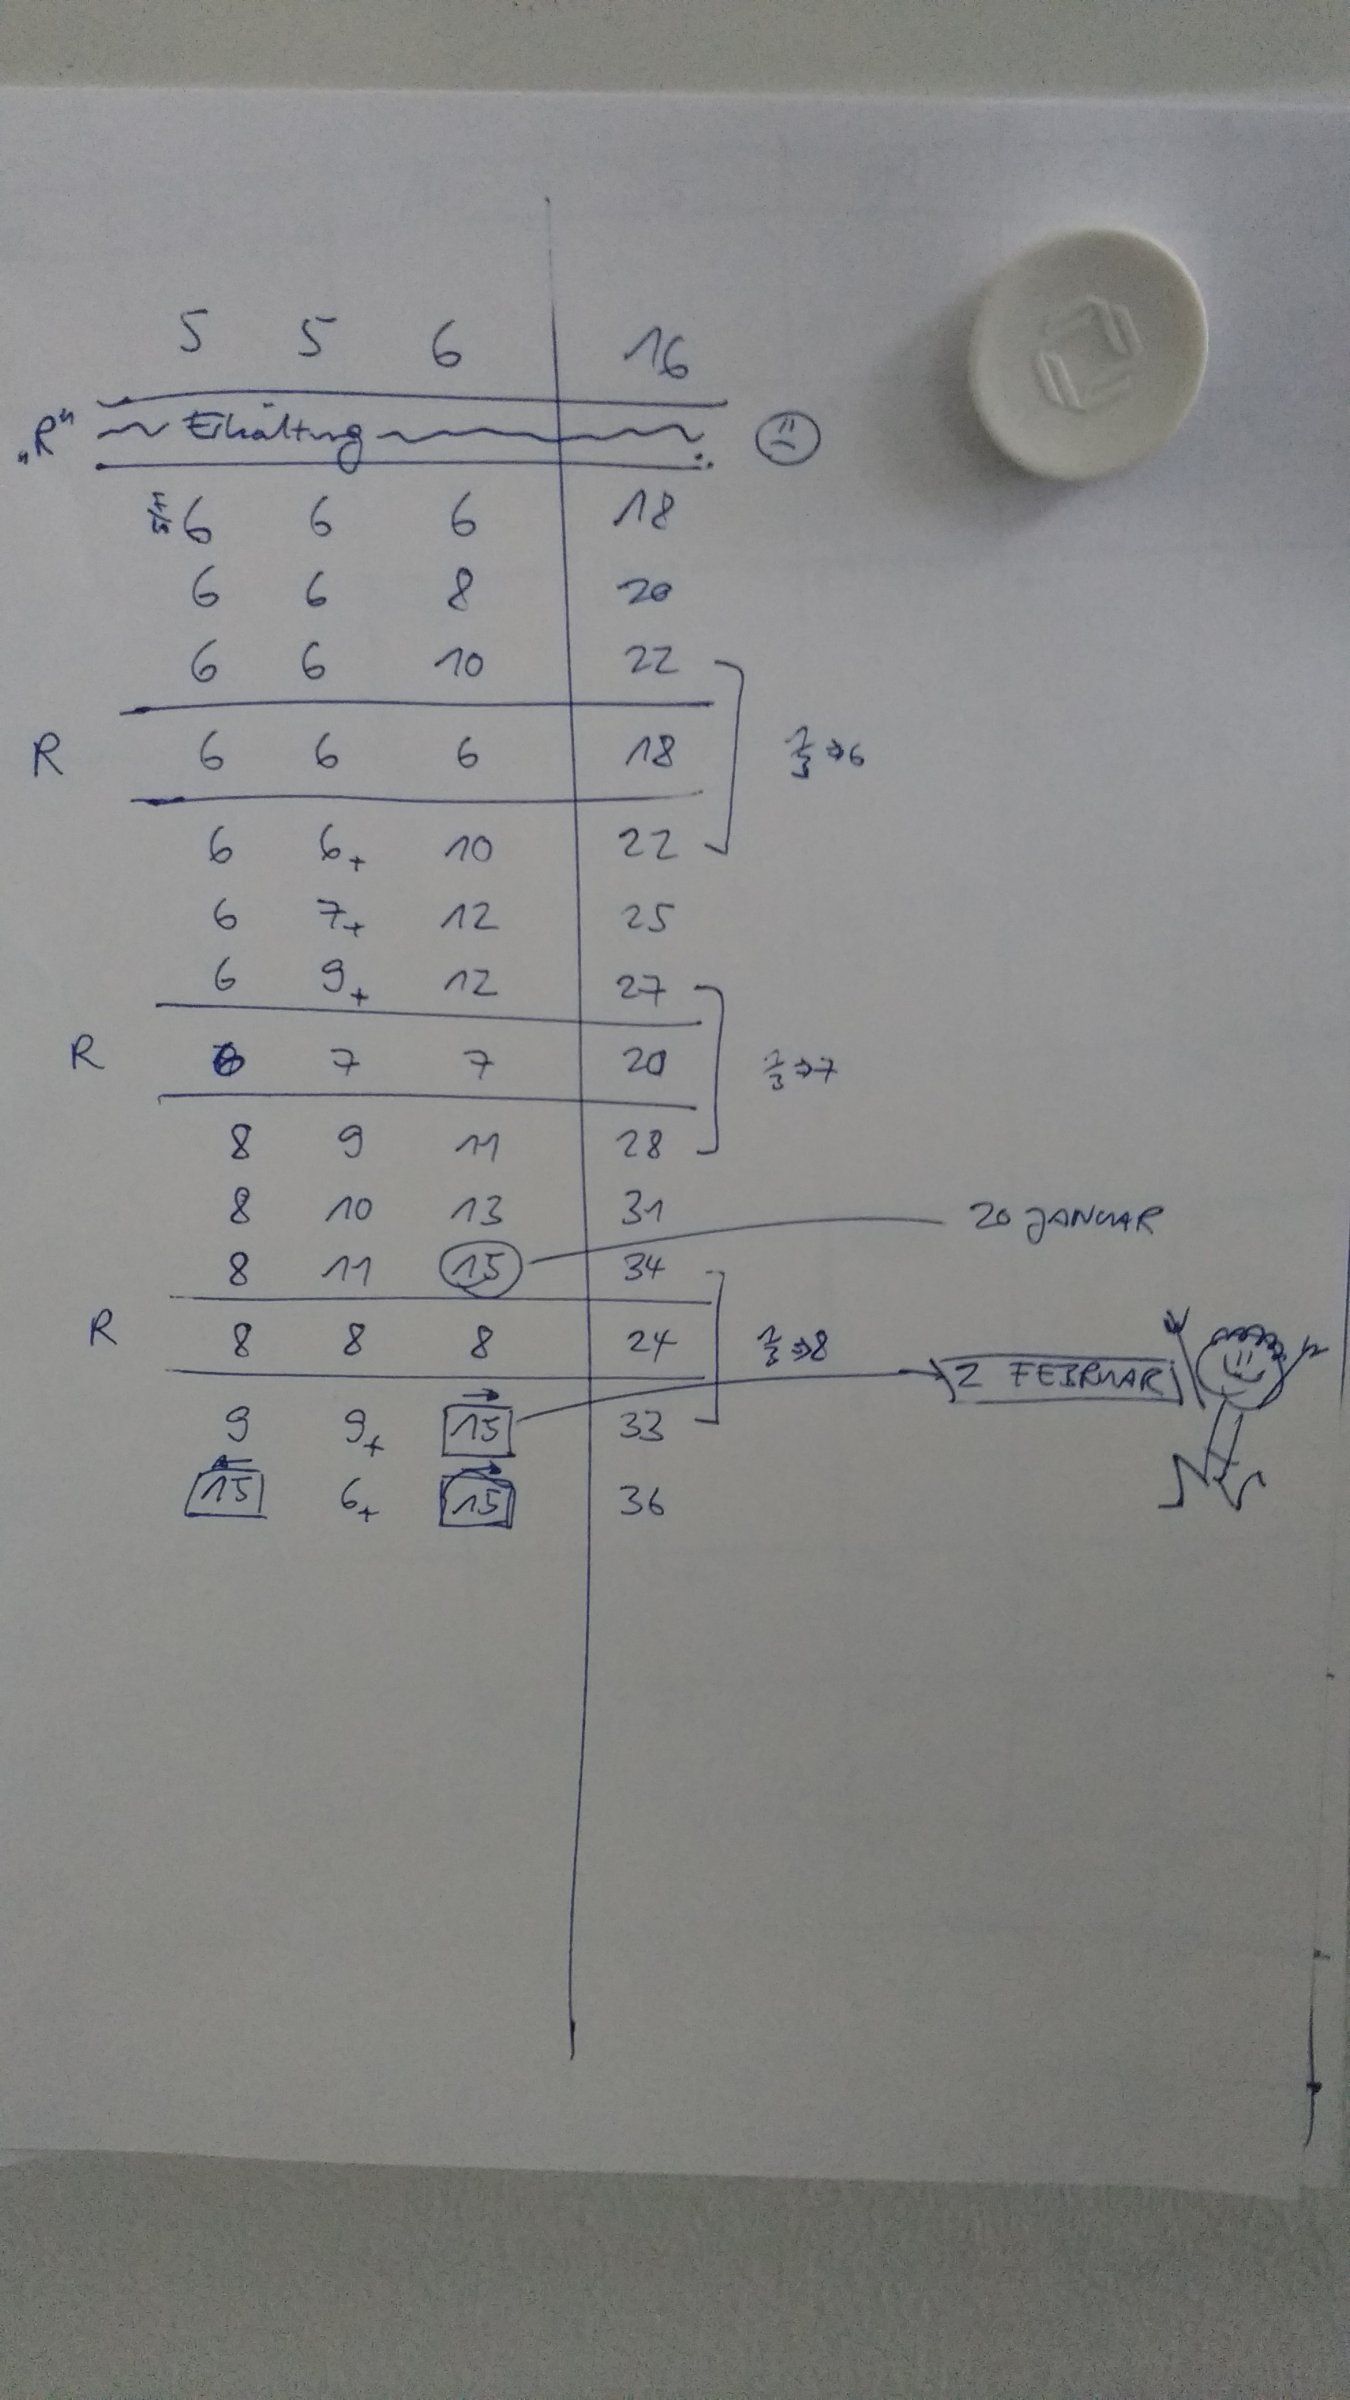 5 5 6 16
„R“ Erkältung
6 6 6 18
6 6 8 20
6 6 10 22
R 6 6 6 18 1/3 ⇒ 6
6 6+ 10 22
6 7+ 12 25
6 9+ 12 27
R 6 7 7 20 1/3 ⇒ 7
8 9 11 28
8 10 13 31 20 JANUAR
8 11 15 34
R 8 8 8 24 1/3 ⇒ 8
2 FEBRUAR
9 9+ 15 33
15 6+ 15 36